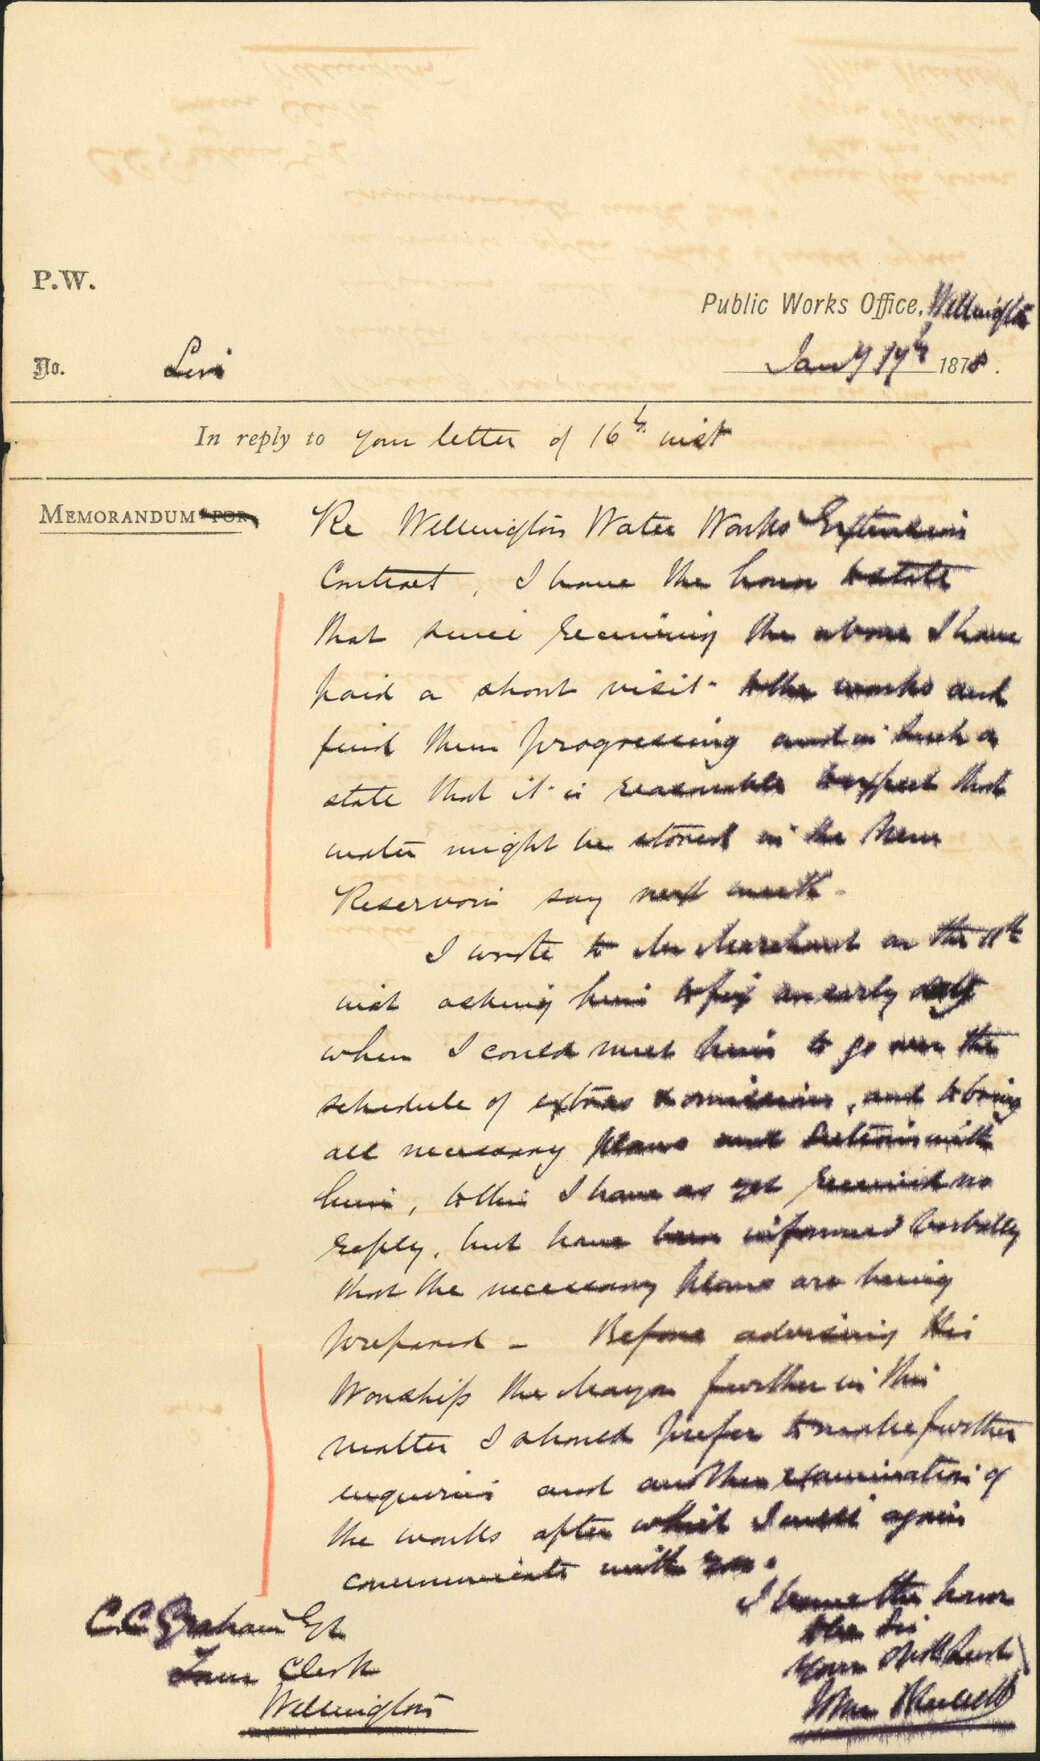 P.W.
Public Works Office, Wellington
No. Sir
Jany 17th 1878.
In reply to your letter of 16th inst
MEMORANDUM FOR
Re Wellington Water Works Extension
Contract, I have the honor to state
that since receiving the above I have
paid a short visit to the works and
find them progressing and in such a
state that it is reasonable to expect that
water might be stored in the New
Reservoir say next week -
I wrote to Mr Marchant on the 11th
inst asking him to fix an early day
when I could meet him to go over the
schedule of extras & omissions, and to bring
all necessary plans and sections with
him, to this I have as yet received no
reply, but have been informed verbally
that the necessary plans are being
prepared - Before advising His
Worship the Mayor further in this
matter I should prefer to make further
enquiries and another examination of
the works after which I will again
communicate with you.
I have the honor
to be Sir
Your Obdt Servt
John Blackett
C.C. Graham Esq
Town Clerk
Wellington